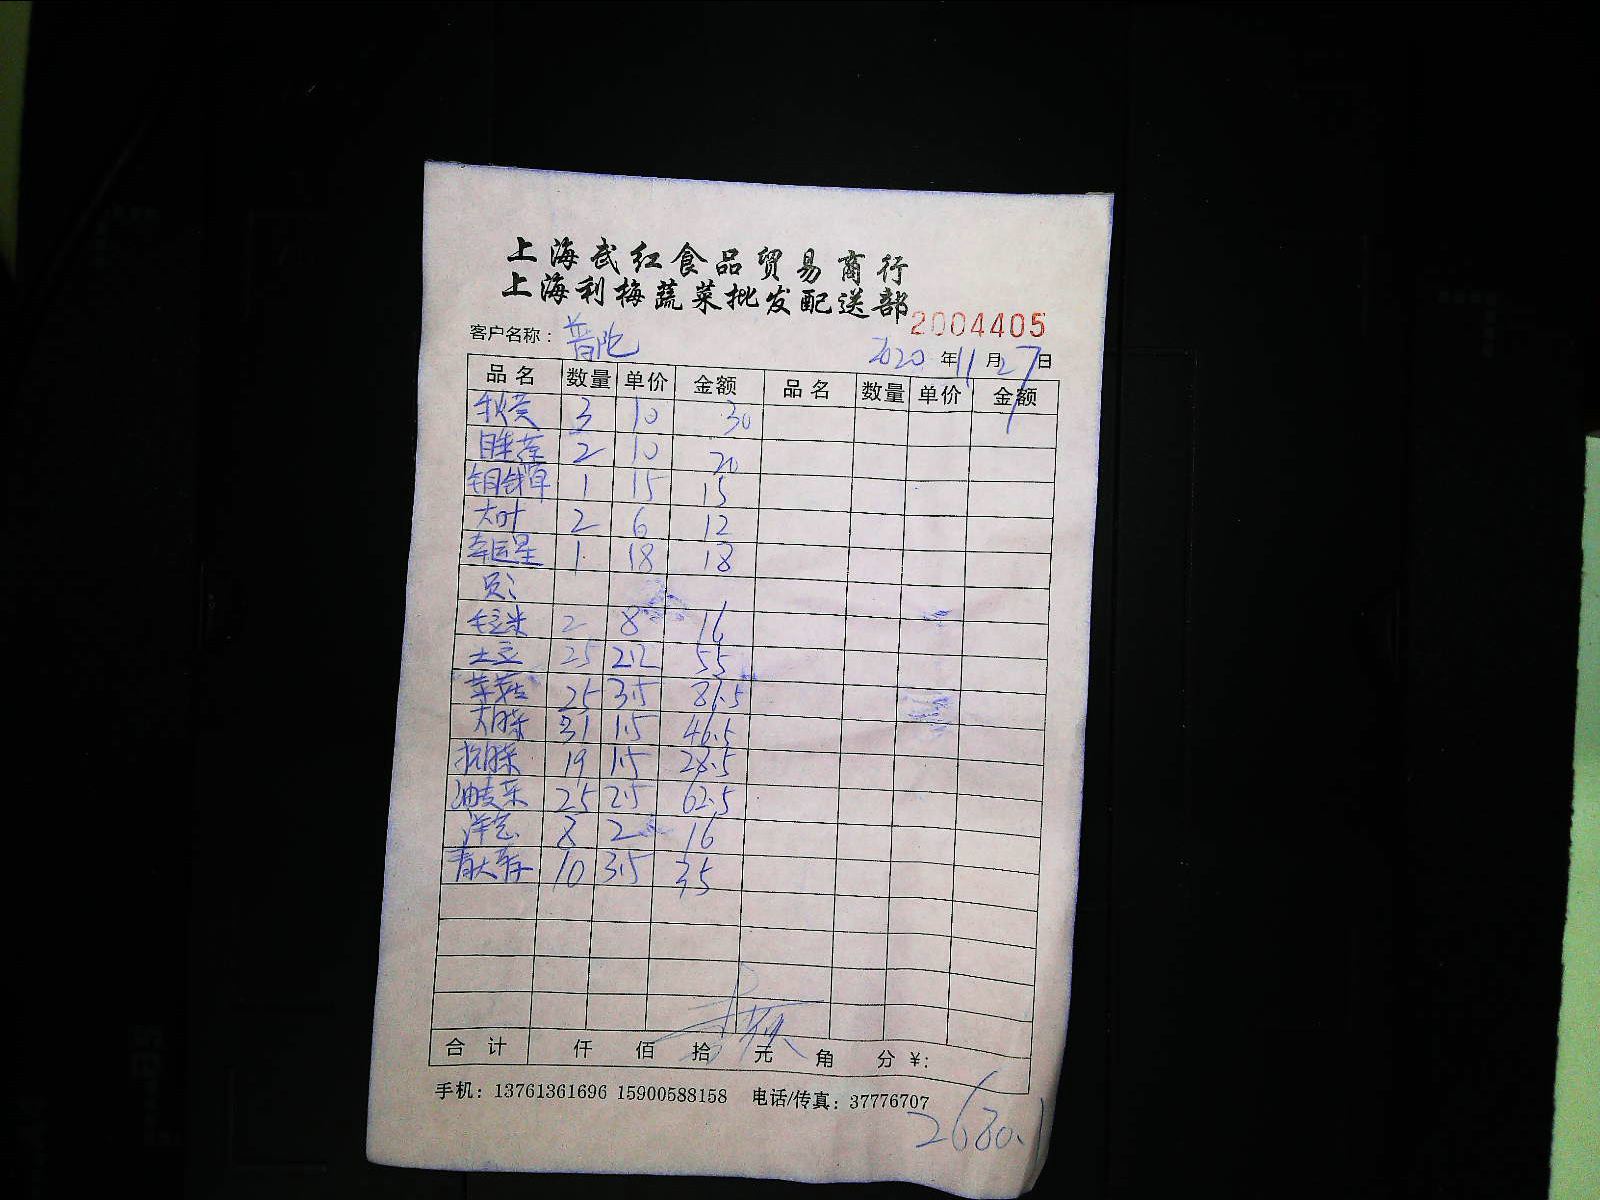 上海武红食品贸易商行
上海利梅蔬菜批发配送部
2004405
客户名称：普陀 2020年11月27日
品名 数量 单价 金额 品名 数量 单价 金额
秋葵 3 10 30
睡莲 2 10 20
铜钱草 1 15 15
大叶 2 6 12
幸运星 1 18 18
毛豆米 2 8 16
土豆 25 2.2 55
草菇 25 3.5 87.5
大白菜 31 1.5 46.5
杭白菜 19 1.5 28.5
油麦菜 25 2.5 62.5
洋芑 8 2 16
青大 10 3.5 35
合计 仟 佰 拾 元 角 分 ¥：
手机：13761361696 15900588158 电话/传真：37776707
2680.1